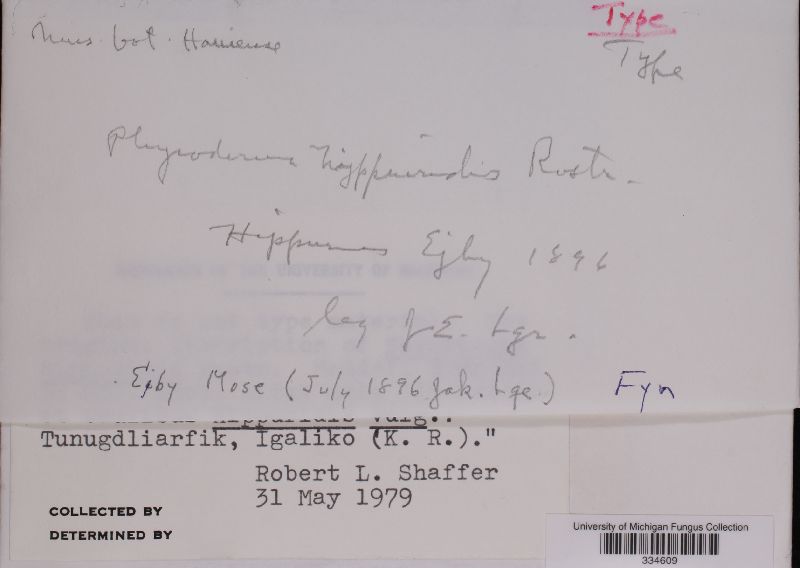 Type
Mus. bot. Hauniense
Type
Physoderma hippuridis Rostr.
Hippuris Ejby 1896
leg J.E. Lge.
Ejby Mose (July 1896 Jak. Lge.) Fyn
hippuridis vulg.:
Tunugdliarfik, Igaliko (K. R.)."
Robert L. Shaffer
31 May 1979
COLLECTED BY
DETERMINED BY
University of Michigan Fungus Collection
334609